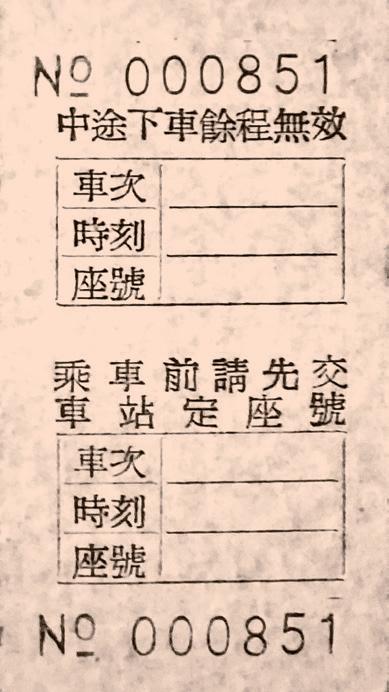 Nº 000851
中途下車餘程無效
車次
時刻
座號
乘車前請先交
車站定座號
車次
時刻
座號
Nº 000851